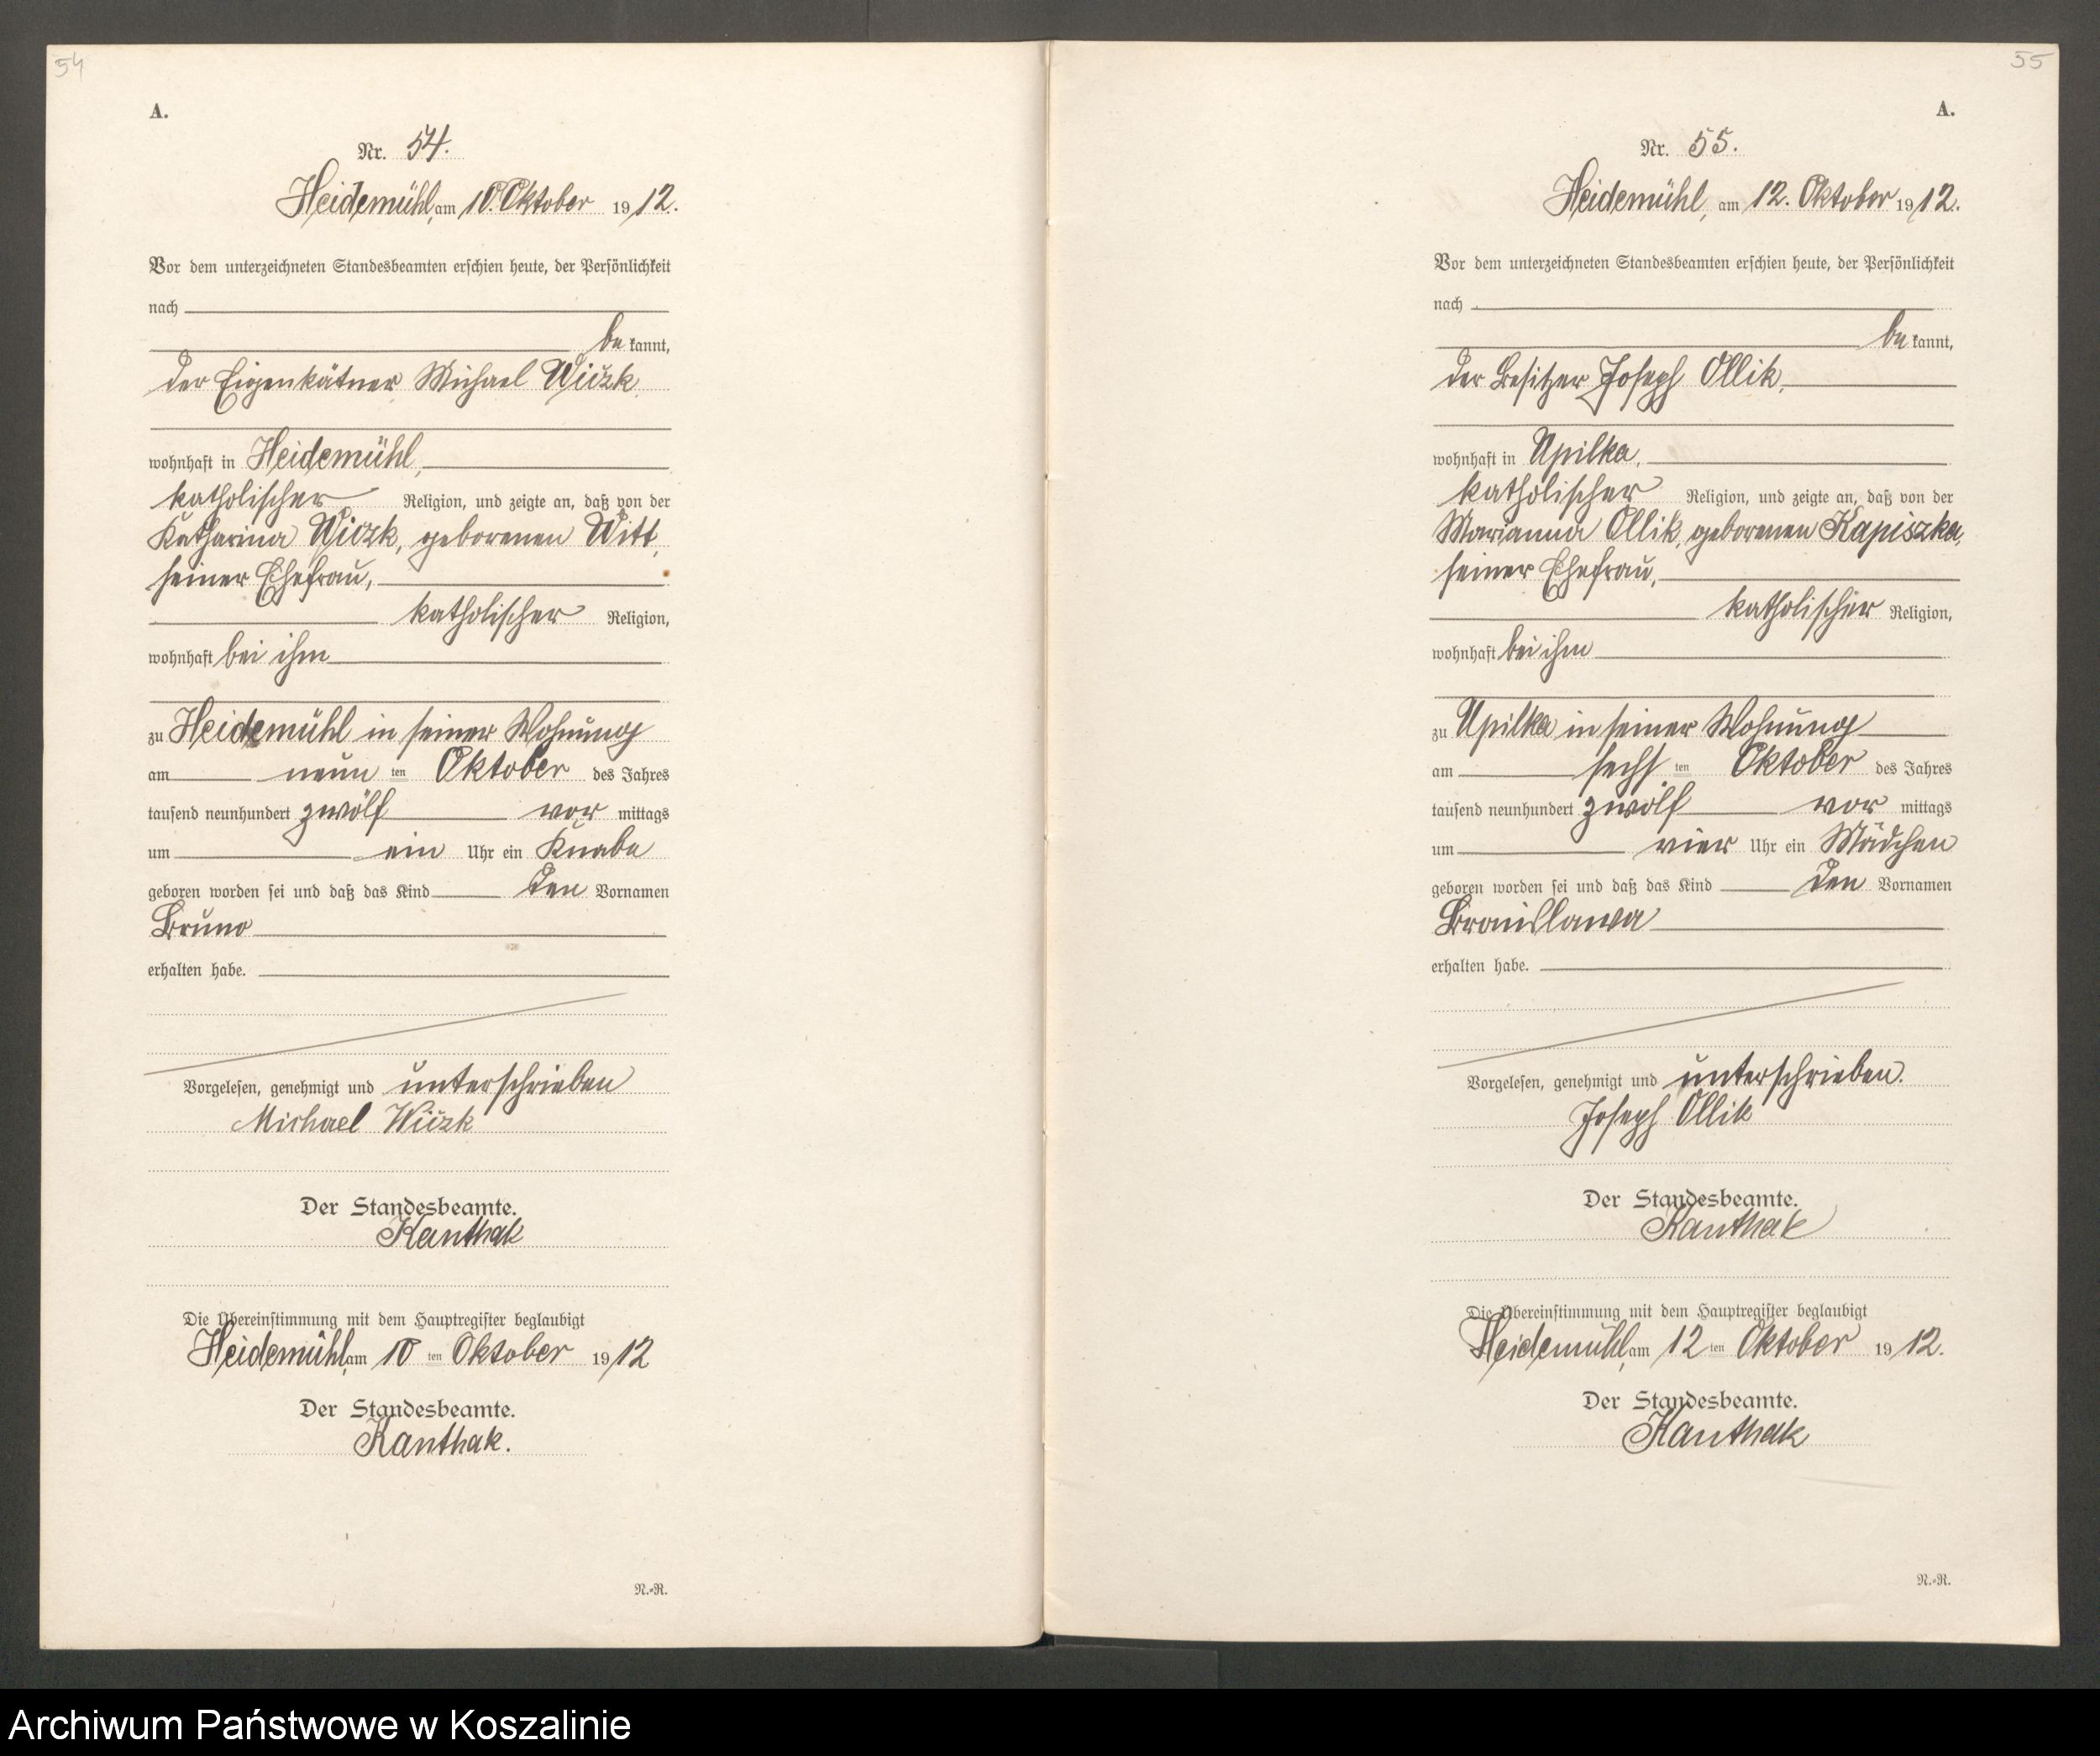 54
A.
Nr. 54.
Heidemühl, am 10. Oktober 1912.
Vor dem unterzeichneten Standesbeamten erschien heute, der Persönlichkeit
nach
be kannt,
der Eigenkätner Michael
wohnhaft in Heidemühl,
katholischer Religion, und zeigte an, daß von der
Katharina geborenen Witt,
seiner Ehefrau,
katholischer Religion,
wohnhaft bei ihm
zu Heidemühl in seiner Wohnung
am neun ten Oktober des Jahres
tausend neunhundert zwölf vor mittags
um ein Uhr ein Knabe
geboren worden sei und daß das Kind den Vornamen
Bruno
erhalten habe.
Vorgelesen, genehmigt und unterschrieben
Michael
Der Standesbeamte.
Kanthak
Die Übereinstimmung mit dem Hauptregister beglaubigt
Heidemühl, am 10 ten Oktober 1912
Der Standesbeamte.
Kanthak.
N.-R.
55
A.
Nr. 55.
Heidemühl, am 12. Oktober 1912.
Vor dem unterzeichneten Standesbeamten erschien heute, der Persönlichkeit
nach
be kannt,
der Besitzer Joseph Ollik,
wohnhaft in Upilka,
katholischer Religion, und zeigte an, daß von der
Marianna Ollik, geborenen Kapiszka,
seiner Ehefrau,
katholischer Religion,
wohnhaft bei ihm
zu Upilka in seiner Wohnung
am sechs ten Oktober des Jahres
tausend neunhundert zwölf vor mittags
um vier Uhr ein Mädchen
geboren worden sei und daß das Kind den Vornamen
Bronislawa
erhalten habe.
Vorgelesen, genehmigt und unterschrieben.
Joseph Ollik
Der Standesbeamte.
Kanthak
Die Übereinstimmung mit dem Hauptregister beglaubigt
Heidemühl, am 12 ten Oktober 1912.
Der Standesbeamte.
Kanthak
N.-R.
Archiwum Państwowe w Koszalinie